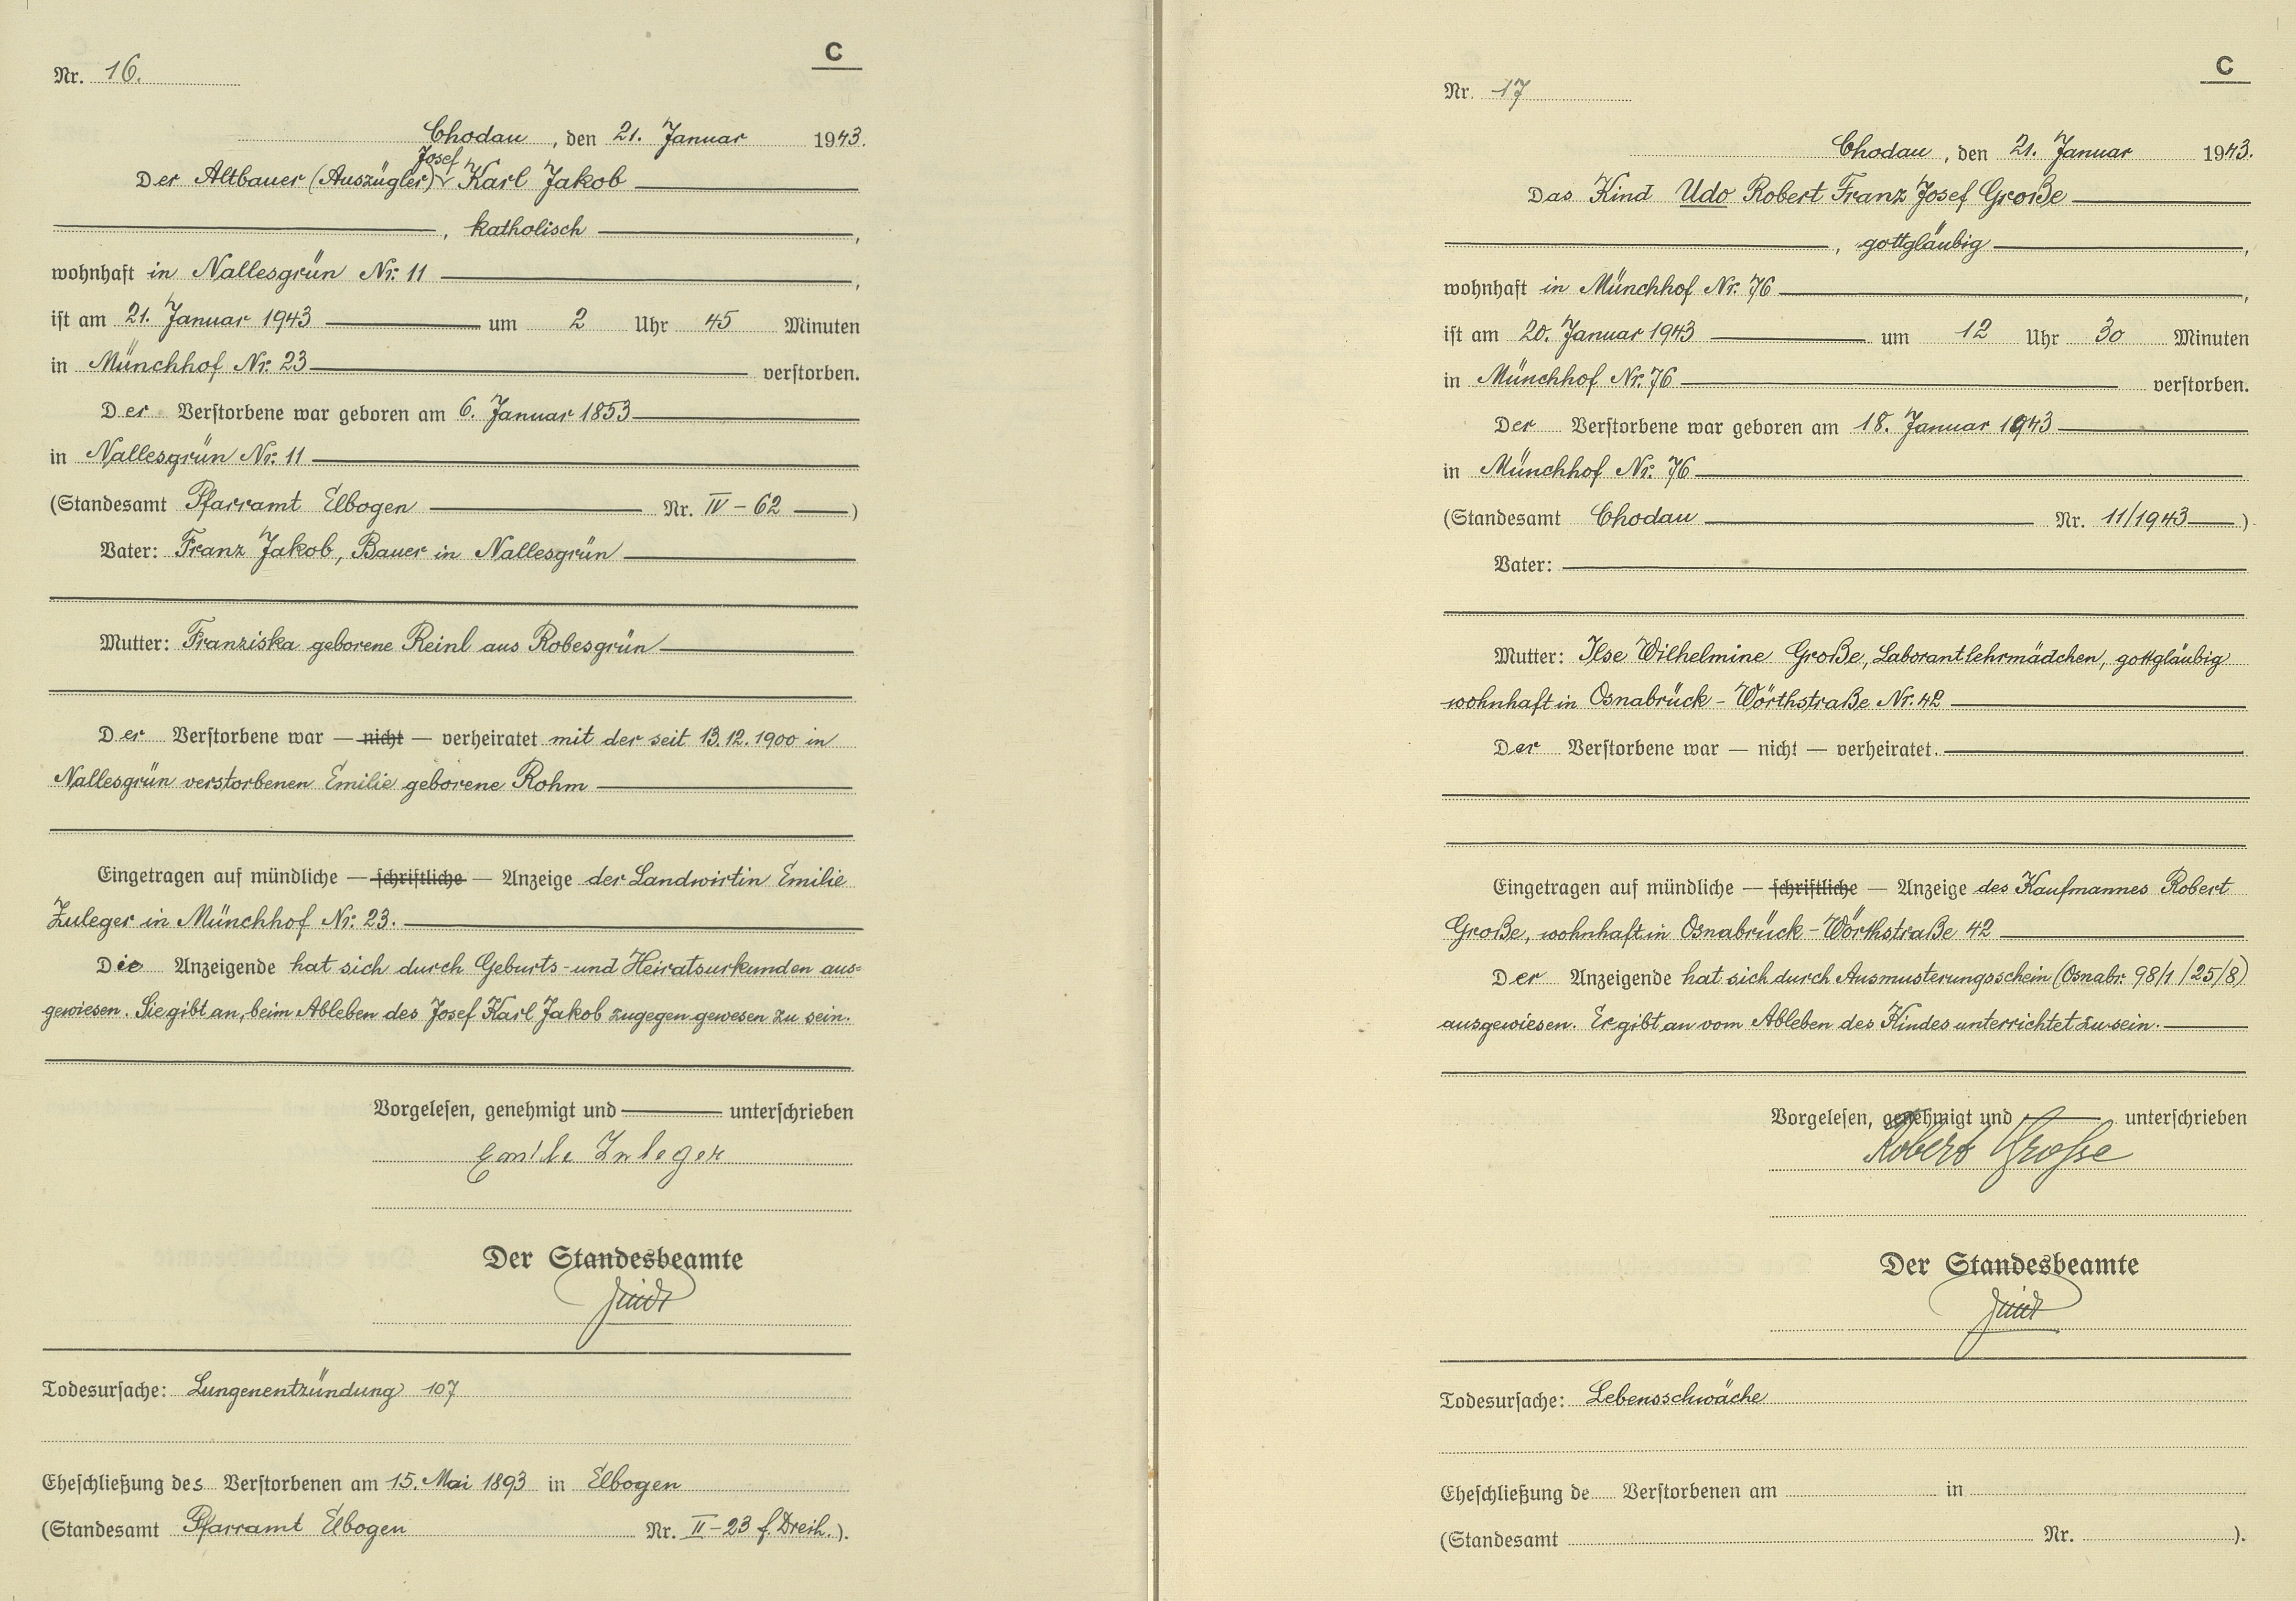 C
Nr. 16.
Chodau, den 21. Januar 1943.
Josef
Der Altbauer (Auszügler) Karl Jakob
, katholisch ,
wohnhaft in Nallesgrün Nr. 11 ,
ist am 21. Januar 1943 um 2 Uhr 45 Minuten
in Münchhof Nr. 23 verstorben.
Der Verstorbene war geboren am 6. Januar 1853
in Nallesgrün Nr. 11
(Standesamt Pfarramt Elbogen Nr. IV - 62 )
Vater: Franz Jakob, Bauer in Nallesgrün
Mutter: Franziska geborene Reinl aus Robesgrün
Der Verstorbene war — nicht — verheiratet mit der seit 13.12.1900 in
Nallesgrün verstorbenen Emilie geborene Rohm
Eingetragen auf mündliche — schriftliche — Anzeige der Landwirtin Emilie
Zuleger in Münchhof Nr. 23.
Die Anzeigende hat sich durch Geburts- und Heiratsurkunden aus=
gewiesen. Sie gibt an, beim Ableben des Josef Karl Jakob zugegen gewesen zu sein.
Vorgelesen, genehmigt und unterschrieben
Emilie Zuleger
Der Standesbeamte
Todesursache: Lungenentzündung 107
Eheschließung des Verstorbenen am 15. Mai 1893 in Elbogen
(Standesamt Pfarramt Elbogen Nr. II - 23 f. Dreih. ).
C
Nr. 17
Chodau, den 21. Januar 1943.
Das Kind Udo Robert Franz Josef Große
, gottgläubig ,
wohnhaft in Münchhof Nr. 76 ,
ist am 20. Januar 1943 um 12 Uhr 30 Minuten
in Münchhof Nr. 76 verstorben.
Der Verstorbene war geboren am 18. Januar 1943
in Münchhof Nr. 76
(Standesamt Chodau Nr. 11/1943 )
Vater:
Mutter: Ilse Wilhelmine Große, Laborantlehrmädchen, gottgläubig
wohnhaft in Osnabrück - Wörthstraße Nr. 42
Der Verstorbene war — nicht — verheiratet.
Eingetragen auf mündliche — schriftliche — Anzeige des Kaufmannes Robert
Große, wohnhaft in Osnabrück - Wörthstraße 42
Der Anzeigende hat sich durch Ausmusterungsschein (Osnabr. 98/1/25/8)
ausgewiesen. Er gibt an vom Ableben des Kindes unterrichtet zu sein.
Vorgelesen, genehmigt und unterschrieben
Robert Grosse
Der Standesbeamte
Todesursache: Lebensschwäche
Eheschließung de Verstorbenen am in
(Standesamt Nr. ).